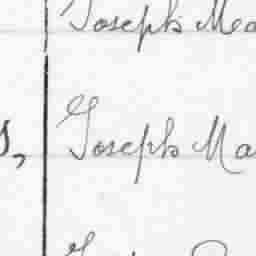 Joseph Ma
s, Joseph Ma